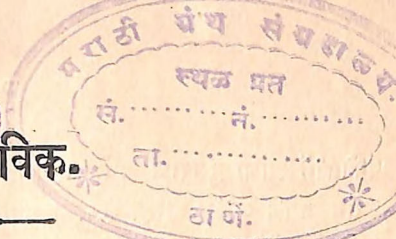 मराठी ग्रंथ संग्रहालय.
स्थळ प्रत
सं. ............ नं. ............
ता. ..................
विक.
ठाणें.